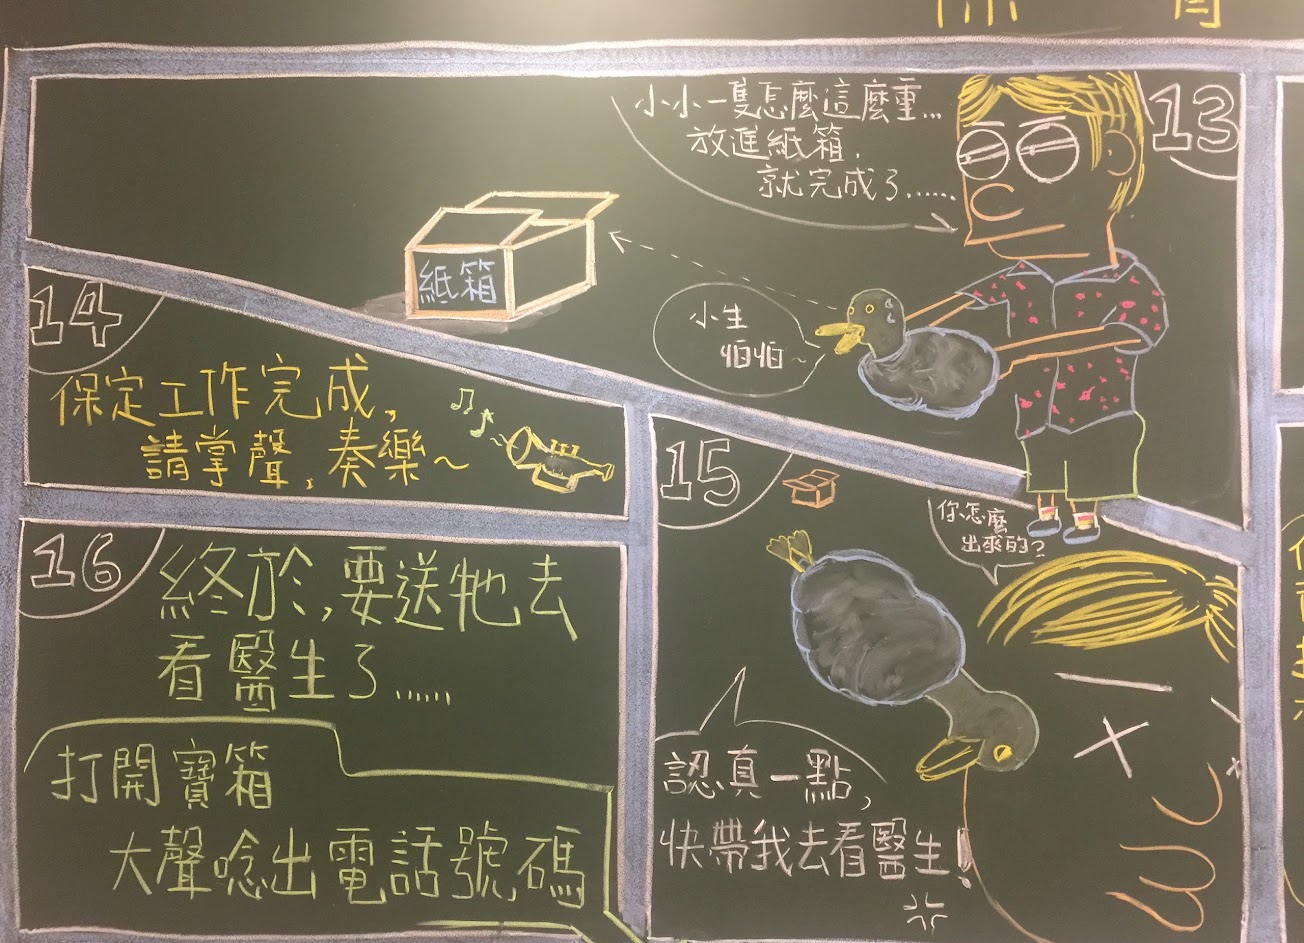 13
小小一隻怎麼這麼重...
放進紙箱,
就完成了......
紙箱
小生
怕怕~
14
保定工作完成,
請掌聲,奏樂~
15
你怎麼
出來的?
認真一點,
快帶我去看醫生!
16
終於,要送牠去
看醫生了......
打開寶箱
大聲唸出電話號碼